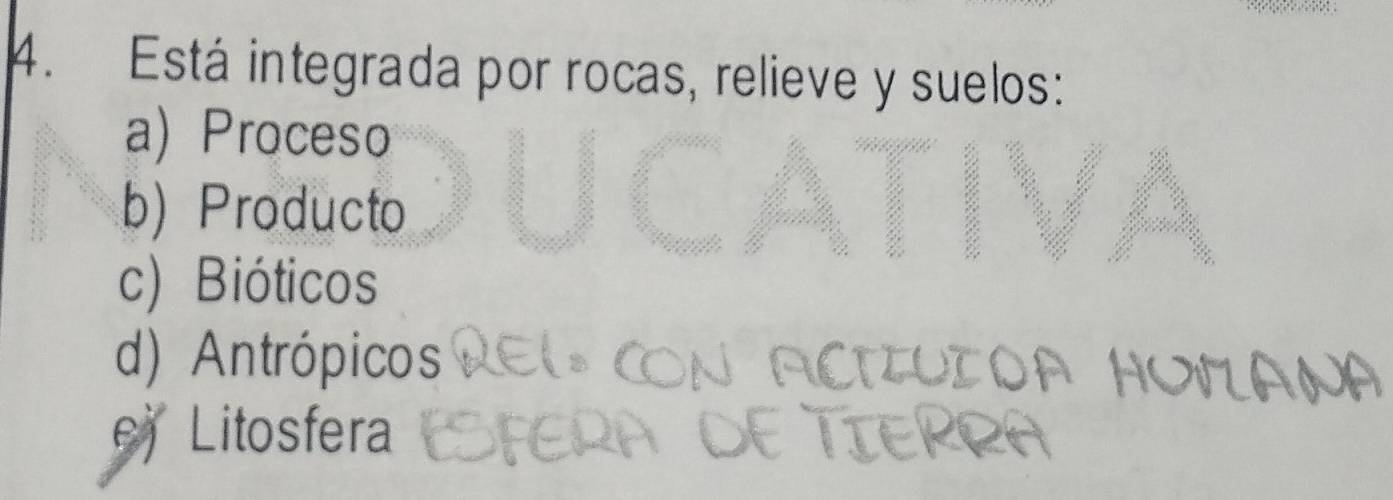 4. Está integrada por rocas, relieve y suelos:
a) Proceso
b) Producto
c) Bióticos
d) Antrópicos REL. CON ACTIVIDA HUMANA
e) Litosfera ESFERA DE TIERRA
N EDUCATIVA